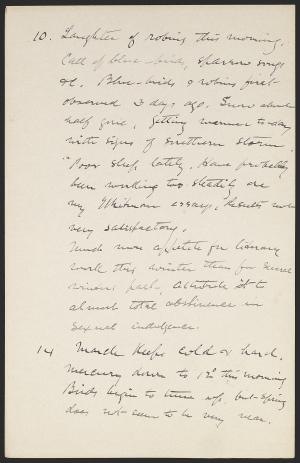 10. Laughter of robins this morning.
Call of blue-birds, sparrow songs
&c. Blue-birds & robins first
observed 3 days ago. Snow about
half gone, getting warmer to-day
with signs of southern storm.
"Poor sleep lately. Have probably
been working too steadily on
my Whitman essay. Results not
very satisfactory.
Much more appetite for literary
work this winter than for several
winters past, attribute it to
almost total abstinence in
sexual indulgence.
14 March keeps cold & hard.
Mercury down to 12° this morning
Birds begin to tune up, but spring
does not seem to be very near.